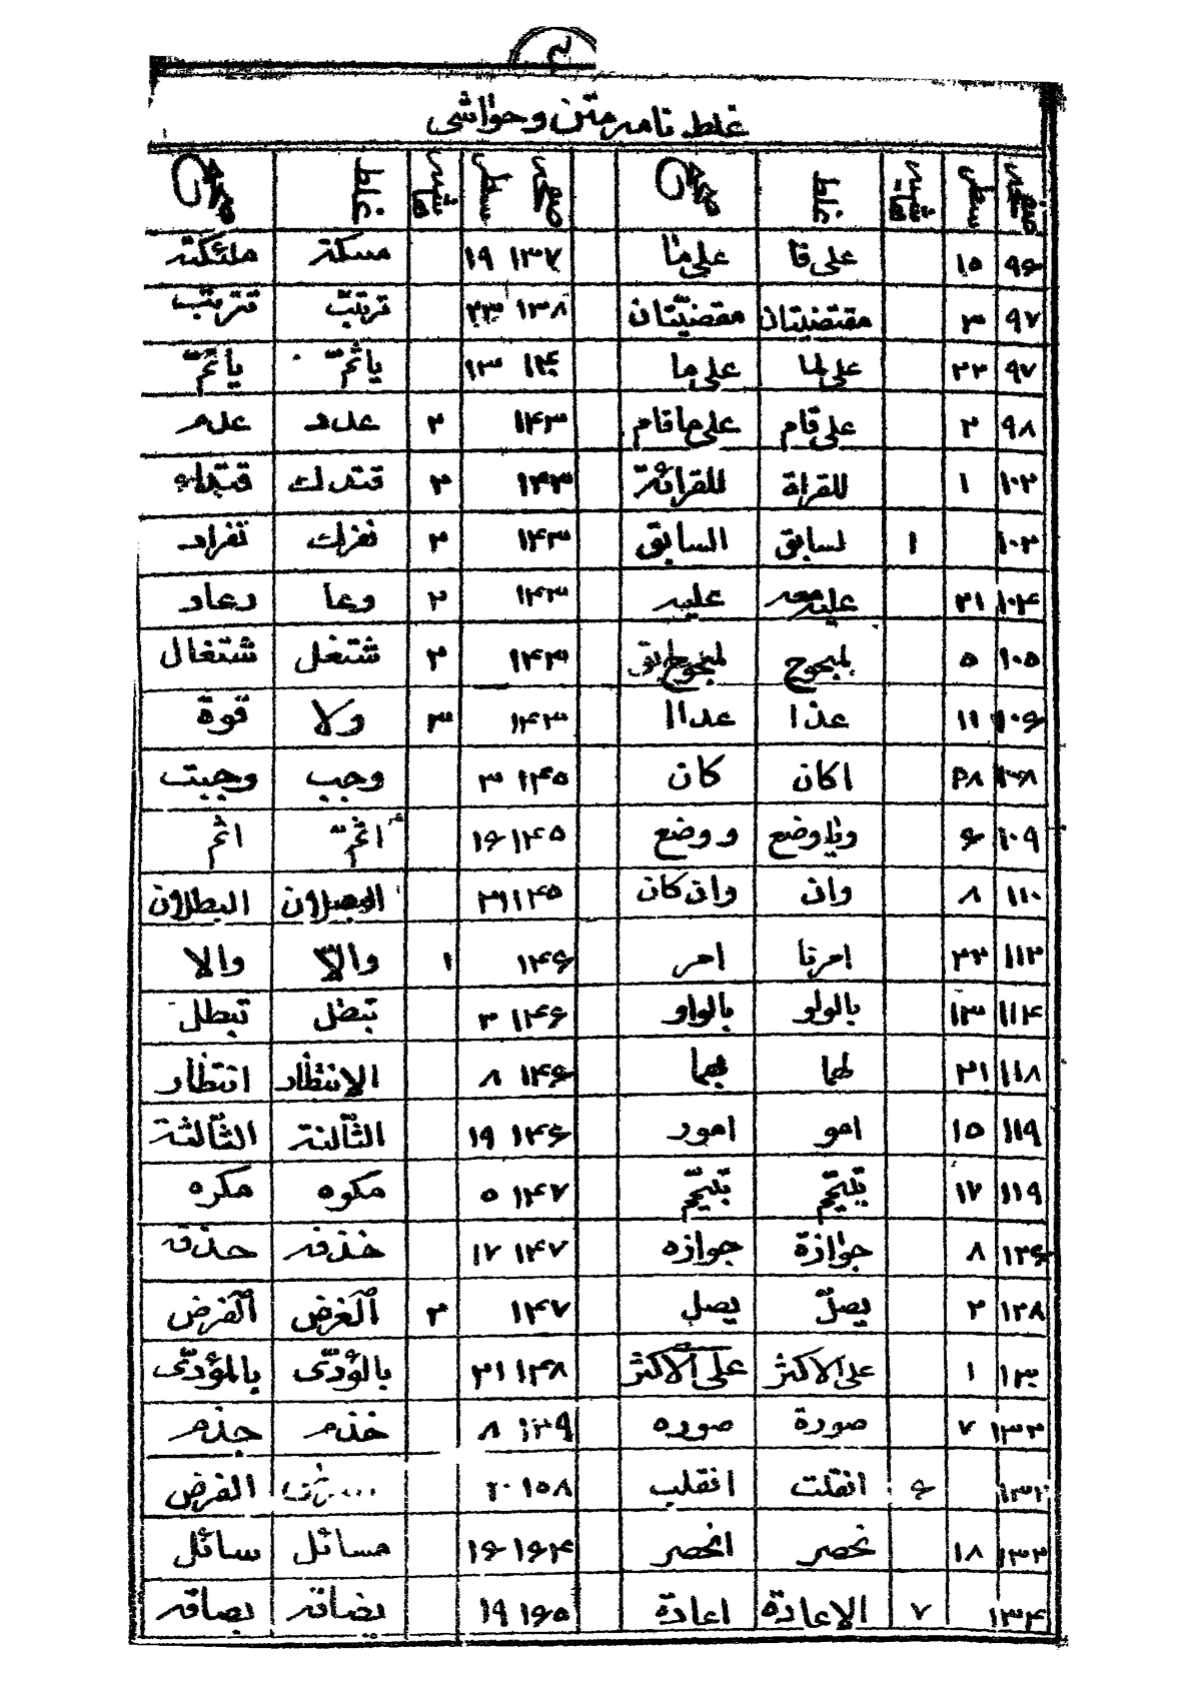 ۳
غلط نامہ متن و حواشی
صفحہ سطر حاشیہ غلط صحیح صفحہ سطر حاشیہ غلط صحیح
۹۶ ۱۵ علی قا علی ما ۱۳۷ ۱۹ مسکة ملئکة
۹۷ ۳ مقتضیتان مقضیّتان ۱۳۸ ۲۳ ترتیب تترتیب
۹۷ ۲۲ علی لما علی ما ۱۴۰ ۱۳ یاثمّ یأثم
۹۸ ۲ علی قام علی ما قام ۱۴۳ ۲ علد علم
۱۰۲ ۱ للقراة للقرائة ۱۴۳ ۲ قتدك قتداء
۱۰۲ ۱ لسابق السابق ۱۴۳ ۲ نفرك نفراد
۱۰۴ ۲۱ علیه معه علیه ۱۴۳ ۲ وعا دعاد
۱۰۵ ۵ لمبحوح ۱۴۳ ۲ شتغل شتغال
۱۰۶ ۱۱ عذا عداا ۱۴۳ ۳ ولا قوة
۱۰۸ ۲۸ اكان كان ۱۴۵ ۳ وجب وجبت
۱۰۹ ۶ ووضع ۱۴۵ ۱۶ اثمّ اثم
۱۱۰ ۸ وان وان كان ۱۴۵ ۲۱ البطلان
۱۱۲ ۲۲ امرنا امر ۱۴۶ ۱ والاّ والا
۱۱۴ ۱۳ بالولو بالواو ۱۴۶ ۳ تبطل
۱۱۸ ۲۱ لهما بهما ۱۴۶ ۸ الانتظار انتظار
۱۱۹ ۱۵ امو امور ۱۴۶ ۱۹ الثّالنة الثّالثة
۱۱۹ ۱۷ یتیمّم تیمّم ۱۴۷ ۵ مکوه مکره
۱۲۶ ۸ جوازة جوازه ۱۴۷ ۱۷ خذفه حذفه
۱۲۸ ۲ یصلّ یصل ۱۴۷ ۲ الغرض الفرض
۱۳۰ ۱ علی الاکثر علی الاکثر ۱۴۸ ۲۱ بالؤدّی بالمؤدّی
۱۳۲ ۷ صورة صوره ۱۴۹ ۸ خذم جذم
۱۳۲ ۶ انقلت انقلب ۱۵۸ ۲۰ الفرض
۱۳۳ ۱۸ نحصر انحصر ۱۶۴ ۱۶ مسائل سائل
۱۳۴ ۷ الاعادة اعادة ۱۶۵ ۱۹ یضاقه بصاقه